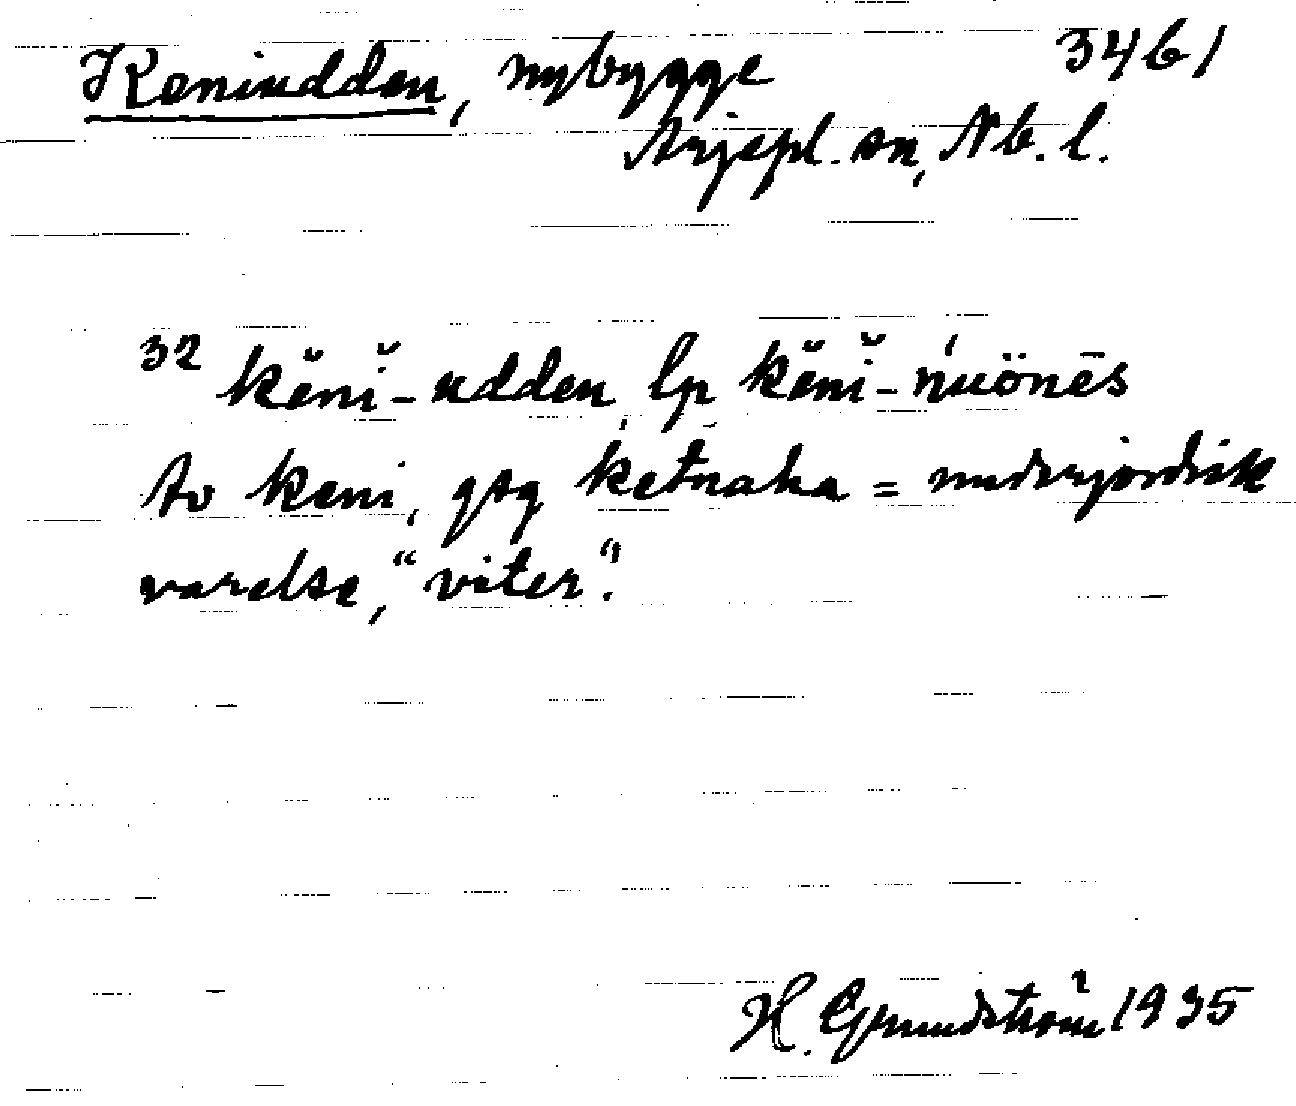 Keniudden, nybygge 3461
Arjepl. sn, Nb. l.
32 kĕnĭ-udden, lp kĕnĭ-ńuönēs
Av keni, gsg ketnaha = underjordisk
varelse, "viter".
H. Grundström 1935